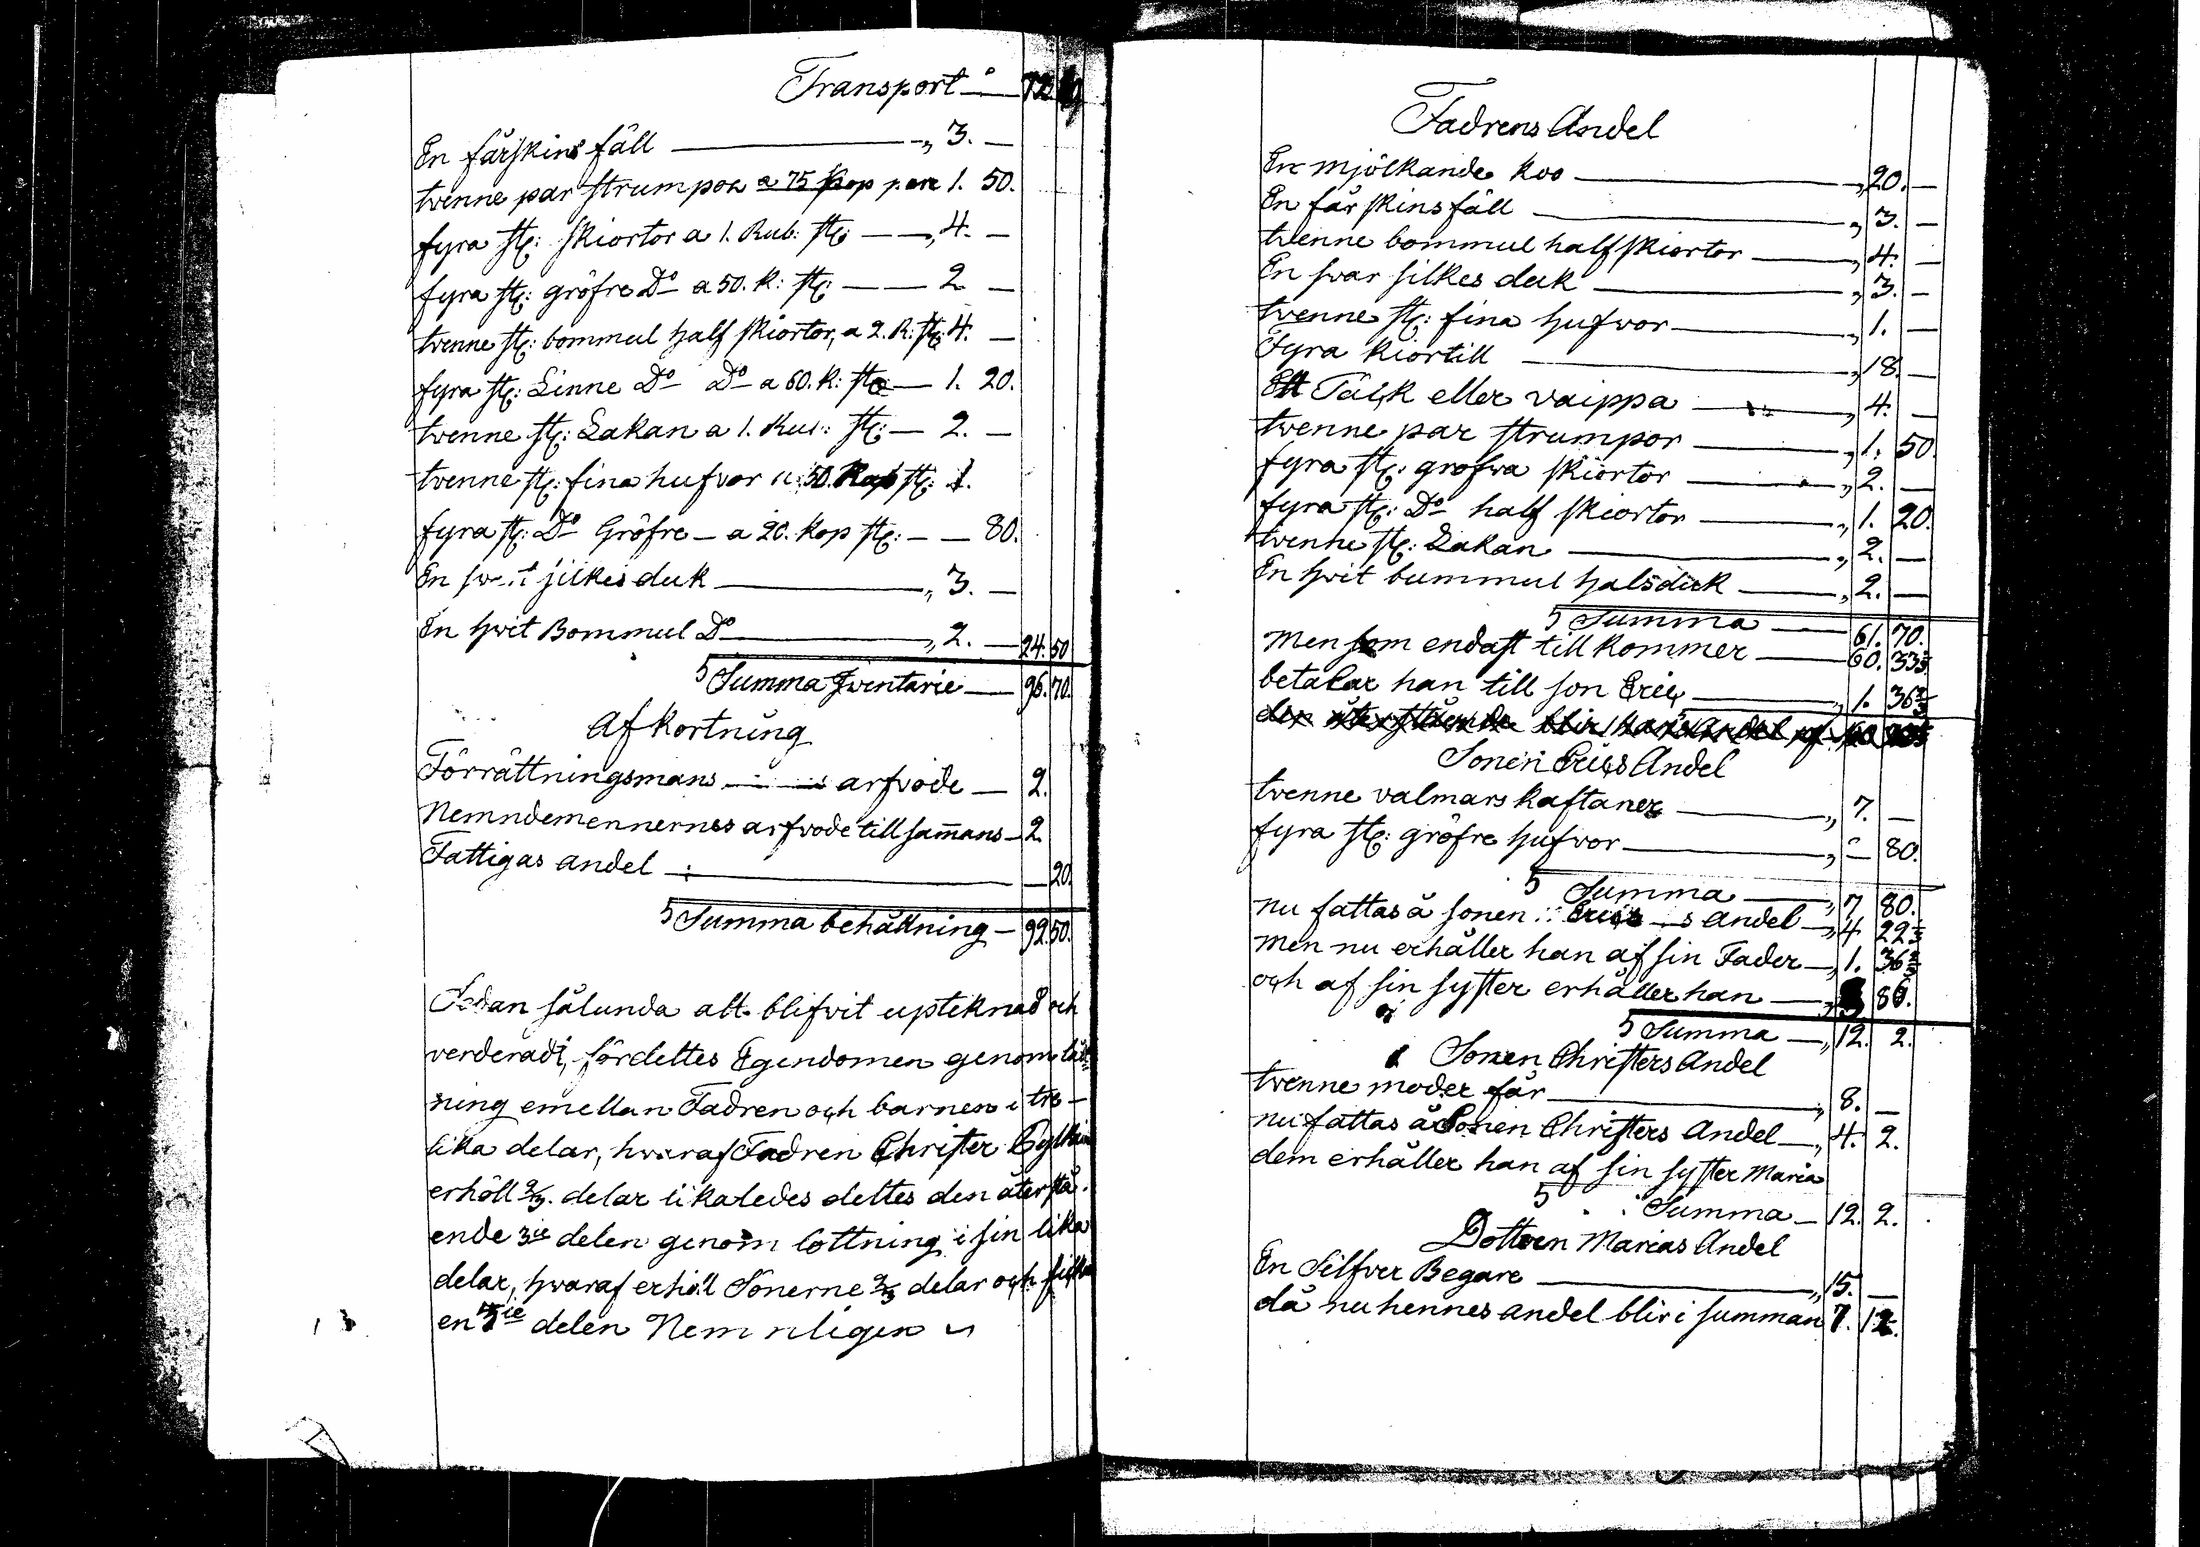 Transport 72
En fårskins fäll „ 3. —
twenne par strumpor a 75 kop pare 1. 50.
fyra st: skiortor a 1. Rub: st: „ 4. —
fyra st: gröfre Do a 50. k: st: 2 —
twenne st: bommul half skiortor, a 2. R: st: 4. —
fyra st: Linne Do Do a 60. k: st: 1. 20.
twenne st: Lakan a 1. Rub: st: 2. —
twenne st: fina hufvor a 50. Kop st: 1.
fyra st: Do Gröfre a 20. kop st: — 80.
En silkes duk „ 3. —
En hwit Bommul Do „ 2. — 24. 50
Summa Inventarie 96. 70.
Afkortning
Förrättningsmans arfvode 2.
Nemndemennernes arfvode till samans 2
Fattigas andel — 20.
Summa behållning 92 50.
Sedan sålunda alt blifvit upteknad och
verderadt, fördeltes Egendomen genom lått
ning emellan Fadren och barnen i tre
lika delar, hwaraf Fadren Christer
erhöll 2/3. delar likaledes deltes den återstå
ende 3ie delen genom lottning i sin lika
delar, hwaraf erhöll Sönerne 2/3 delar och
en 3ie delen Nemnligen
Fadrens Andel
En mjölkande koo „ 20. —
En får skins fäll „ 3. —
twenne bommul half skiortor „ 4. —
En svar silkes duk „ 3. —
twenne st: fina hufvor „ 1. —
Fyra kiortill „ 18. —
Ett Täck eller vaippa „ 4. —
twenne par strumpor „ 1. 50.
fyra st: grofwa skiortor „ 2. —
fyra st: Do half skiortor „ 1. 20.
twenne st: Lakan „ 2. —
En hwit bummul halsduk „ 2. —
Summa 61. 70.
Men som endast till kommer 60. 33 1/3
betalar han till son Eric „ 1. 36 2/3
Sonen Erics Andel
twenne valmars kaftaner „ 7. —
fyra st: gröfre hufvor „ — 80.
Summa „ 7. 80.
nu fattas å sonen Erics Andel „ 4. 22 1/3
men nu erhåller han af sin Fader „ 1. 36 2/3
och af sin syster erhåller han „
Summa „ 12. 2.
Sonen Christers Andel
twenne moder får „ 8. —
nu fattas å Sonen Christers Andel „ 4. 2.
dem erhåller han af sin syster Maria
Summa 12. 2.
Dottren Marias Andel
En Silfver Begare „ 15. —
då nu hennes andel blir i summan 7. 12.